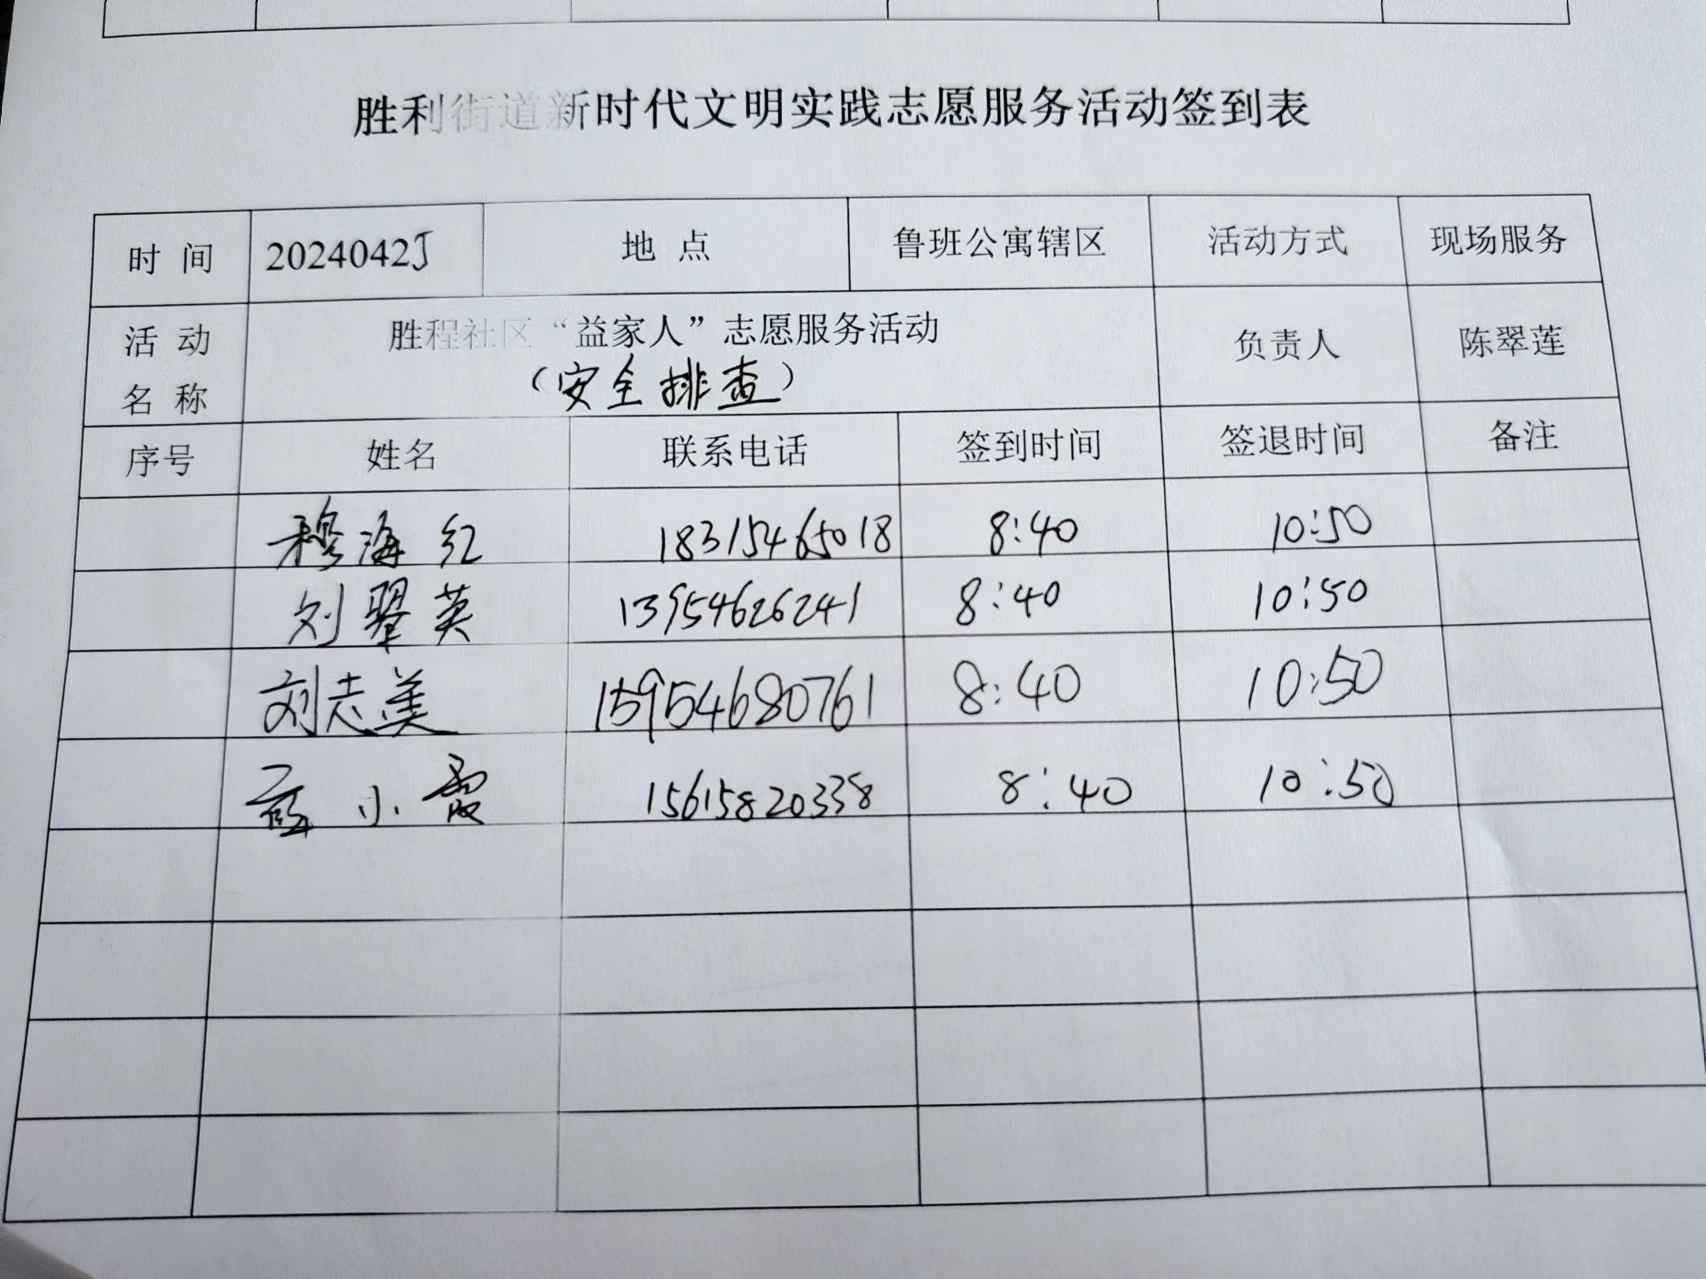 胜利街道新时代文明实践志愿服务活动签到表
时 间 20240425 地 点 鲁班公寓辖区 活动方式 现场服务
活 动 名 称 胜程社区“益家人”志愿服务活动 负责人 陈翠莲
（安全排查）
序号 姓名 联系电话 签到时间 签退时间 备注
穆海红 18315465018 8:40 10:50
刘翠英 13954626241 8:40 10:50
刘志美 15954680761 8:40 10:50
小霞 15615820338 8:40 10:50